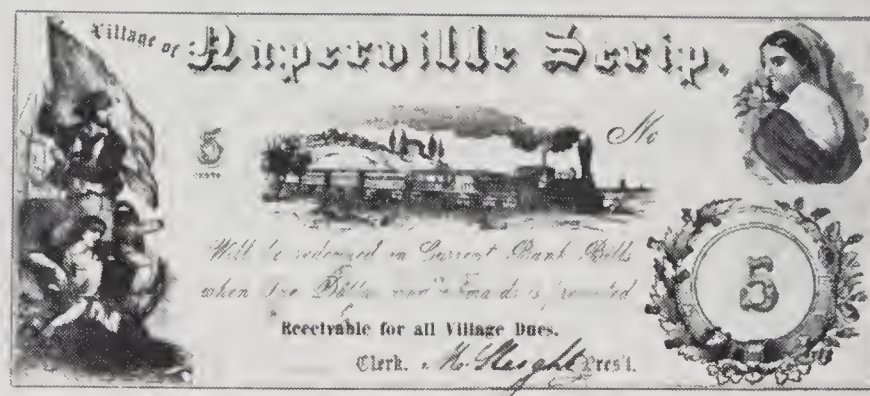 Village of Naperville Scrip.
5 No
CENTS
Will be redeemed in Current Bank Bills
when One Dollar and upwards is presented
5
Receivable for all Village Dues.
Clerk. M. Sleight Pres't.